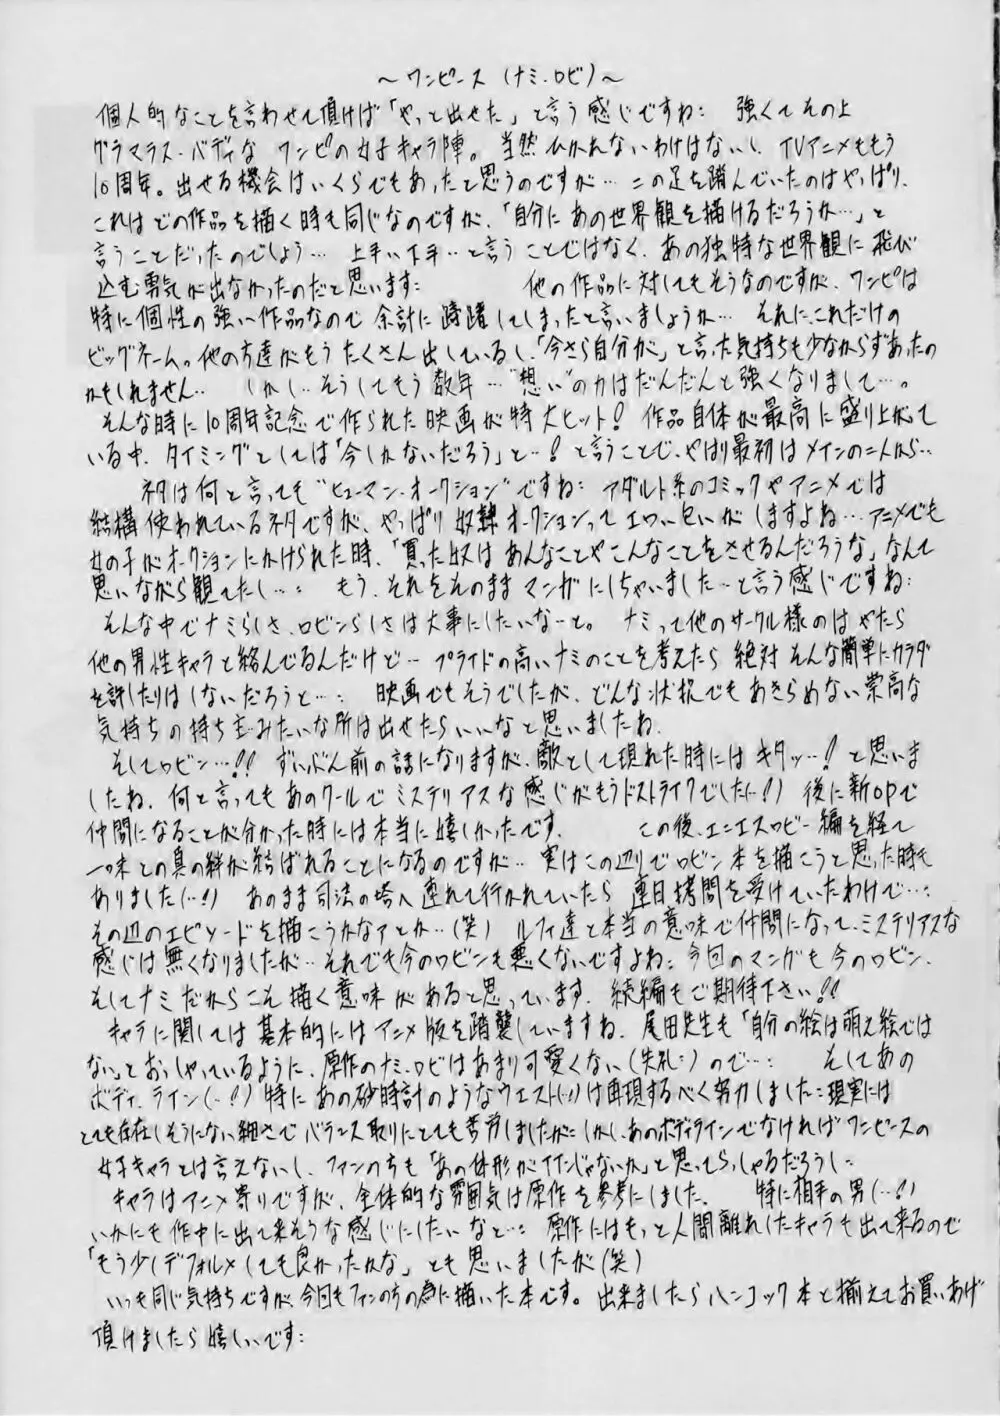 ～ワンピース（ナミ・ロビ）～
個人的なことを言わせて頂けば「やっと出せた」と言う感じですね: 強くてその上
グラマラス・バディな ワンピの女子キャラ陣。当然ひかれないわけはないし、TVアニメももう
10周年。出せる機会はいくらでもあったと思うのですが… 二の足を踏んでいたのはやっぱり、
これはどの作品を描く時も同じなのですが、「自分にあの世界観を描けるだろうか…」と
言うことだったのでしょう… 上手い下手‥と言うことではなく、あの独特な世界観に飛び
込む勇気が出なかったのだと思います: 他の作品に対してもそうなのですが、ワンピは
特に個性の強い作品なので 余計に躊躇してしまったと言いましょうか… それに、これだけの
ビッグネーム。他の方達がもう たくさん出しているし、「今さら自分が」と言った気持ちも少なからずあったの
かもしれません‥ しかし‥そうしてもう数年…"想い"の力はだんだんと強くなりまして…。
そんな時に10周年記念で作られた映画が特大ヒット! 作品自体が最高に盛り上がって
いる中、タイミングとしては「今しかないだろう」と…! と言うことで、やはり最初はメインの二人から‥
ネタは何と言っても"ヒューマン・オークション"ですね: アダルト系のコミックやアニメでは
結構使われているネタですが、やっぱり奴隷オークションって エロい匂いがしますよね…アニメでも
女の子がオークションにかけられた時、「買った奴は あんなことやこんなことをさせるんだろうな」なんて
思いながら観てたし…: もう、それをそのままマンガにしちゃいました…と言う感じですね:
そんな中でナミらしさ、ロビンらしさは大事にしたいなーと。 ナミって他のサークル様のはやたら
他の男性キャラと絡んでるんだけど‥ プライドの高いナミのことを考えたら 絶対そんな簡単にカラダ
を許したりはしないだろうと…: 映画でもそうでしたが、どんな状況でもあきらめない崇高な
気持ちの持ち主みたいな所は出せたらいいなと思いましたね、
そしてロビン…!! ずいぶん前の話になりますが、敵として現れた時には キタッ…! と思いま
したね、何と言ってもあのクールで ミステリアスな感じがもうドストライクでした(…!) 後に新OPで
仲間になることが分かった時には本当に嬉しかったです。 この後、エニエスロビー編を経て
一味との真の絆が結ばれることになるのですが‥ 実はこの辺りでロビン本を描こうと思った時も
ありました(…!) あのまま司法の塔へ連れて行かれていたら 連日拷問を受けていたわけで…:
その辺のエピソードを描こうかなァとか‥(笑) ルフィ達と本当の意味で仲間になって、ミステリアスな
感じは無くなりましたが…それでも今のロビンも悪くないですよね: 今回のマンガも今のロビン、
そしてナミだからこそ描く意味があると思っています、続編もご期待下さい!!
キャラに関しては基本的にはアニメ版を踏襲していますね、尾田先生も「自分の絵は萌え絵では
ない」とおっしゃっているように、原作のナミ、ロビはあまり可愛くない(失礼:)ので…: そしてあの
ボディ・ライン(‥!) 特にあの砂時計のようなウエスト(…!)は再現するべく努力しました: 現実には
とても存在しそうにない細さで バランス取りにとても苦労しましたが: しかし、あのボディラインでなければワンピースの
女子キャラとは言えないし、ファンの方も「あの体形がイイんじゃないか」と思ってらっしゃるだろうし:
キャラはアニメ寄りですが、全体的な雰囲気は原作を参考にしました、 特に相手の男(…!)
いかにも作中に出て来そうな感じにしたいなと…: 原作にはもっと人間離れしたキャラも出て来るので
「もう少しデフォルメしても良かったかな」とも思いましたが(笑)
いつも同じ気持ちですが、今回もファンの方の為に描いた本です。出来ましたらハンコック本と揃えてお買いあげ
頂けましたら嬉しいです: